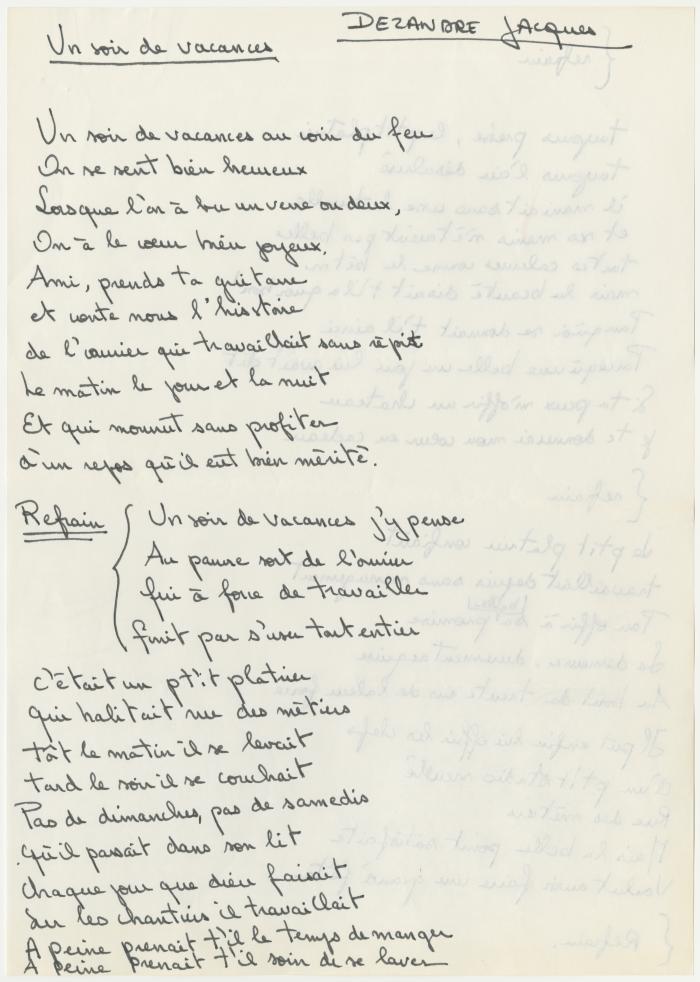 DEZANDRE Jacques
Un soir de vacances
Un soir de vacances au coin du feu
On se sent bien heureux
Lorsque l'on à bu un verre ou deux,
On à le cœur bien joyeux.
Ami, prends ta guitare
et conte nous l'hisstoire
de l'ouvrier qui travaillait sans répit
Le matin le jour et la nuit
Et qui mourrut sans profiter
d'un repos qu'il eut bien mérité.
Refrain { Un soir de vacances j'y pense
Au pauvre sort de l'ouvrier
qui à force de travailler
finit par s'user tout entier
c'était un pt'it platrier
qui habitait rue des métiers
tôt le matin il se levait
tard le soir il se couchait
Pas de dimanches, pas de samedis
qu'il passait dans son lit
chaque jour que dieu faisait
Sur les chantiers il travaillait
A peine prenait t'il le temps de manger
A peine prenait t'il soin de se laver